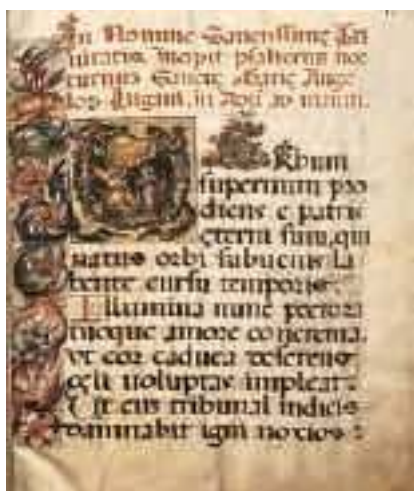 In Nomine Sanctissime Tri
nitatis incipit psalterius noc
turnus Sancte Marie Ange
lor
Erbum
supernum pro
diens e patris
eterni sinu, qui
natus orbi subvenis la
bente cursu temporis
Illumina nunc pectora
tuoque amore concrema,
vt cor caduca deserens
celi voluptas impleat:
Ut cum tribunal iudicis
damnabit igni noxios: